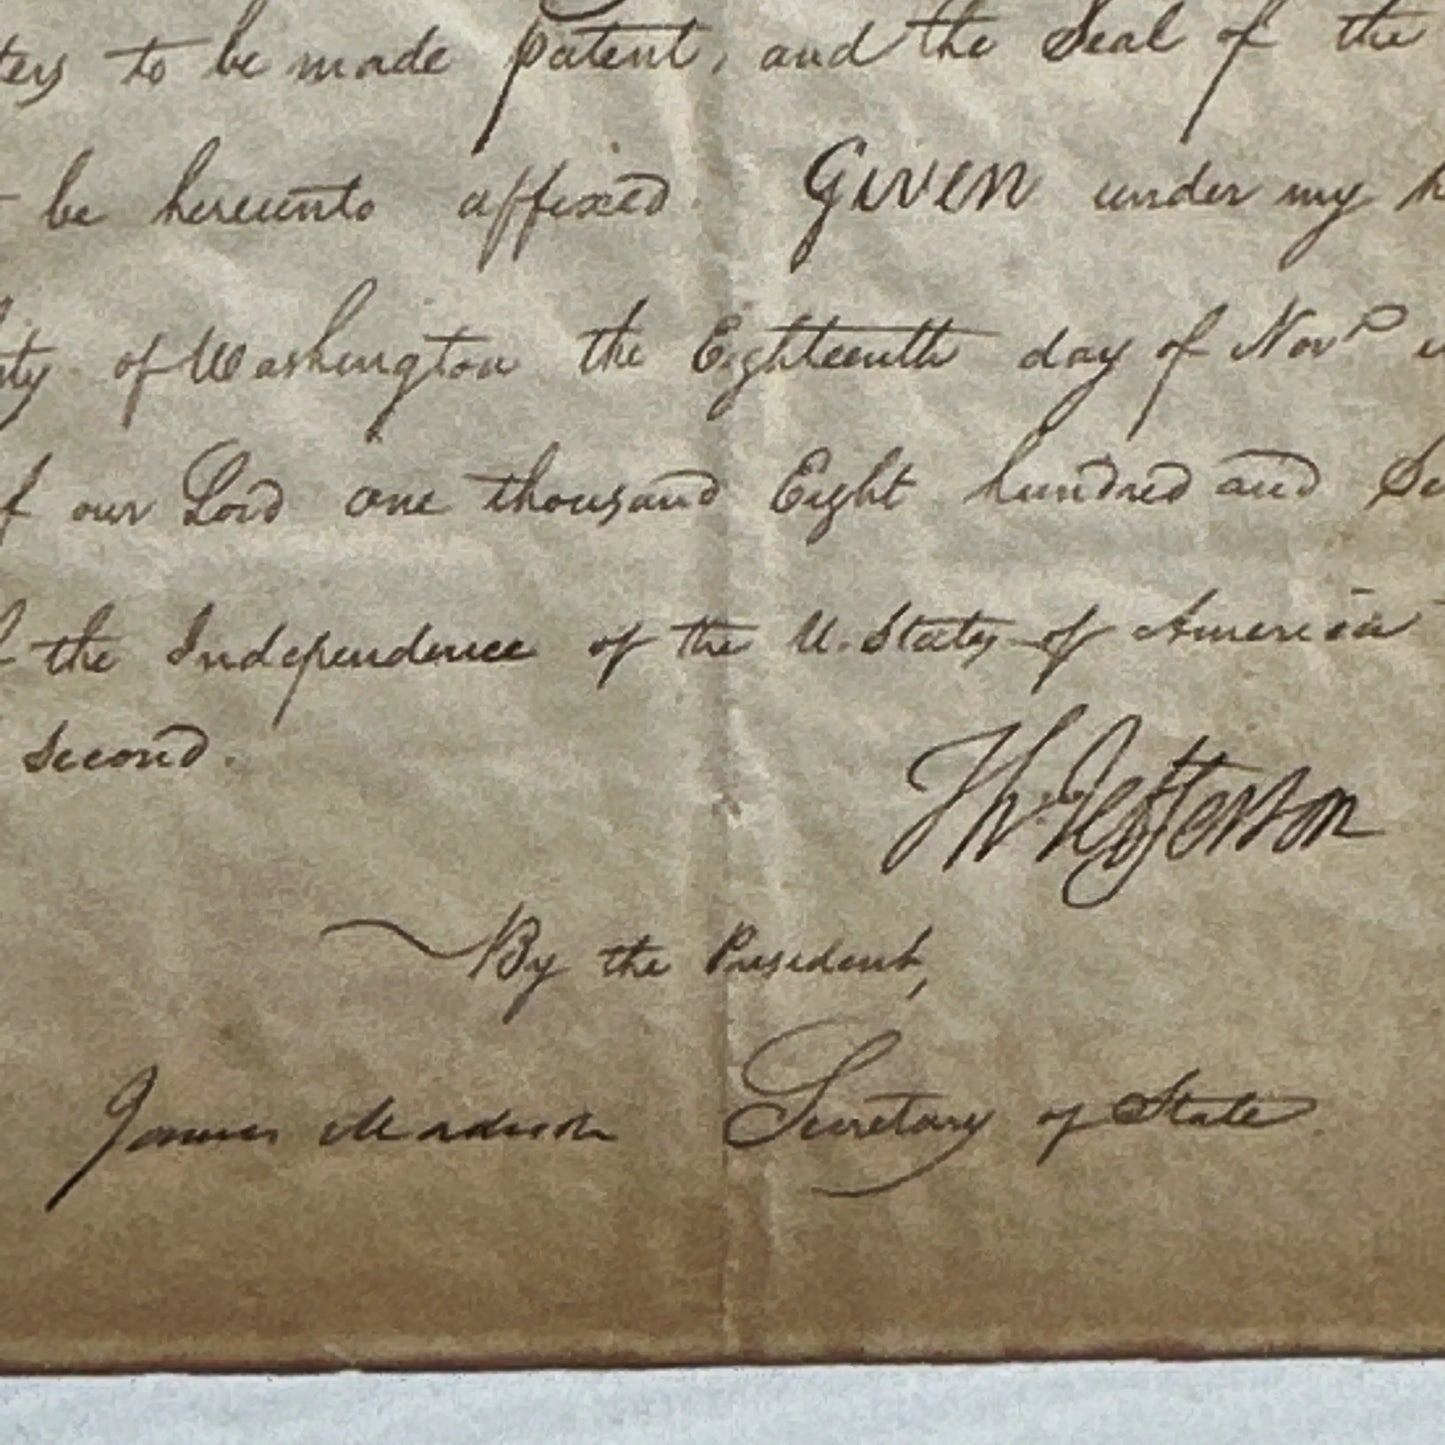 to be made patent, and the Seal of the
be hereunto affixed. Given under my
of Washington the Eighteenth day of Novr
our Lord one thousand Eight hundred and
the Independence of the U. States of America
Second.
Th Jefferson
By the President,
James Madison Secretary of State.